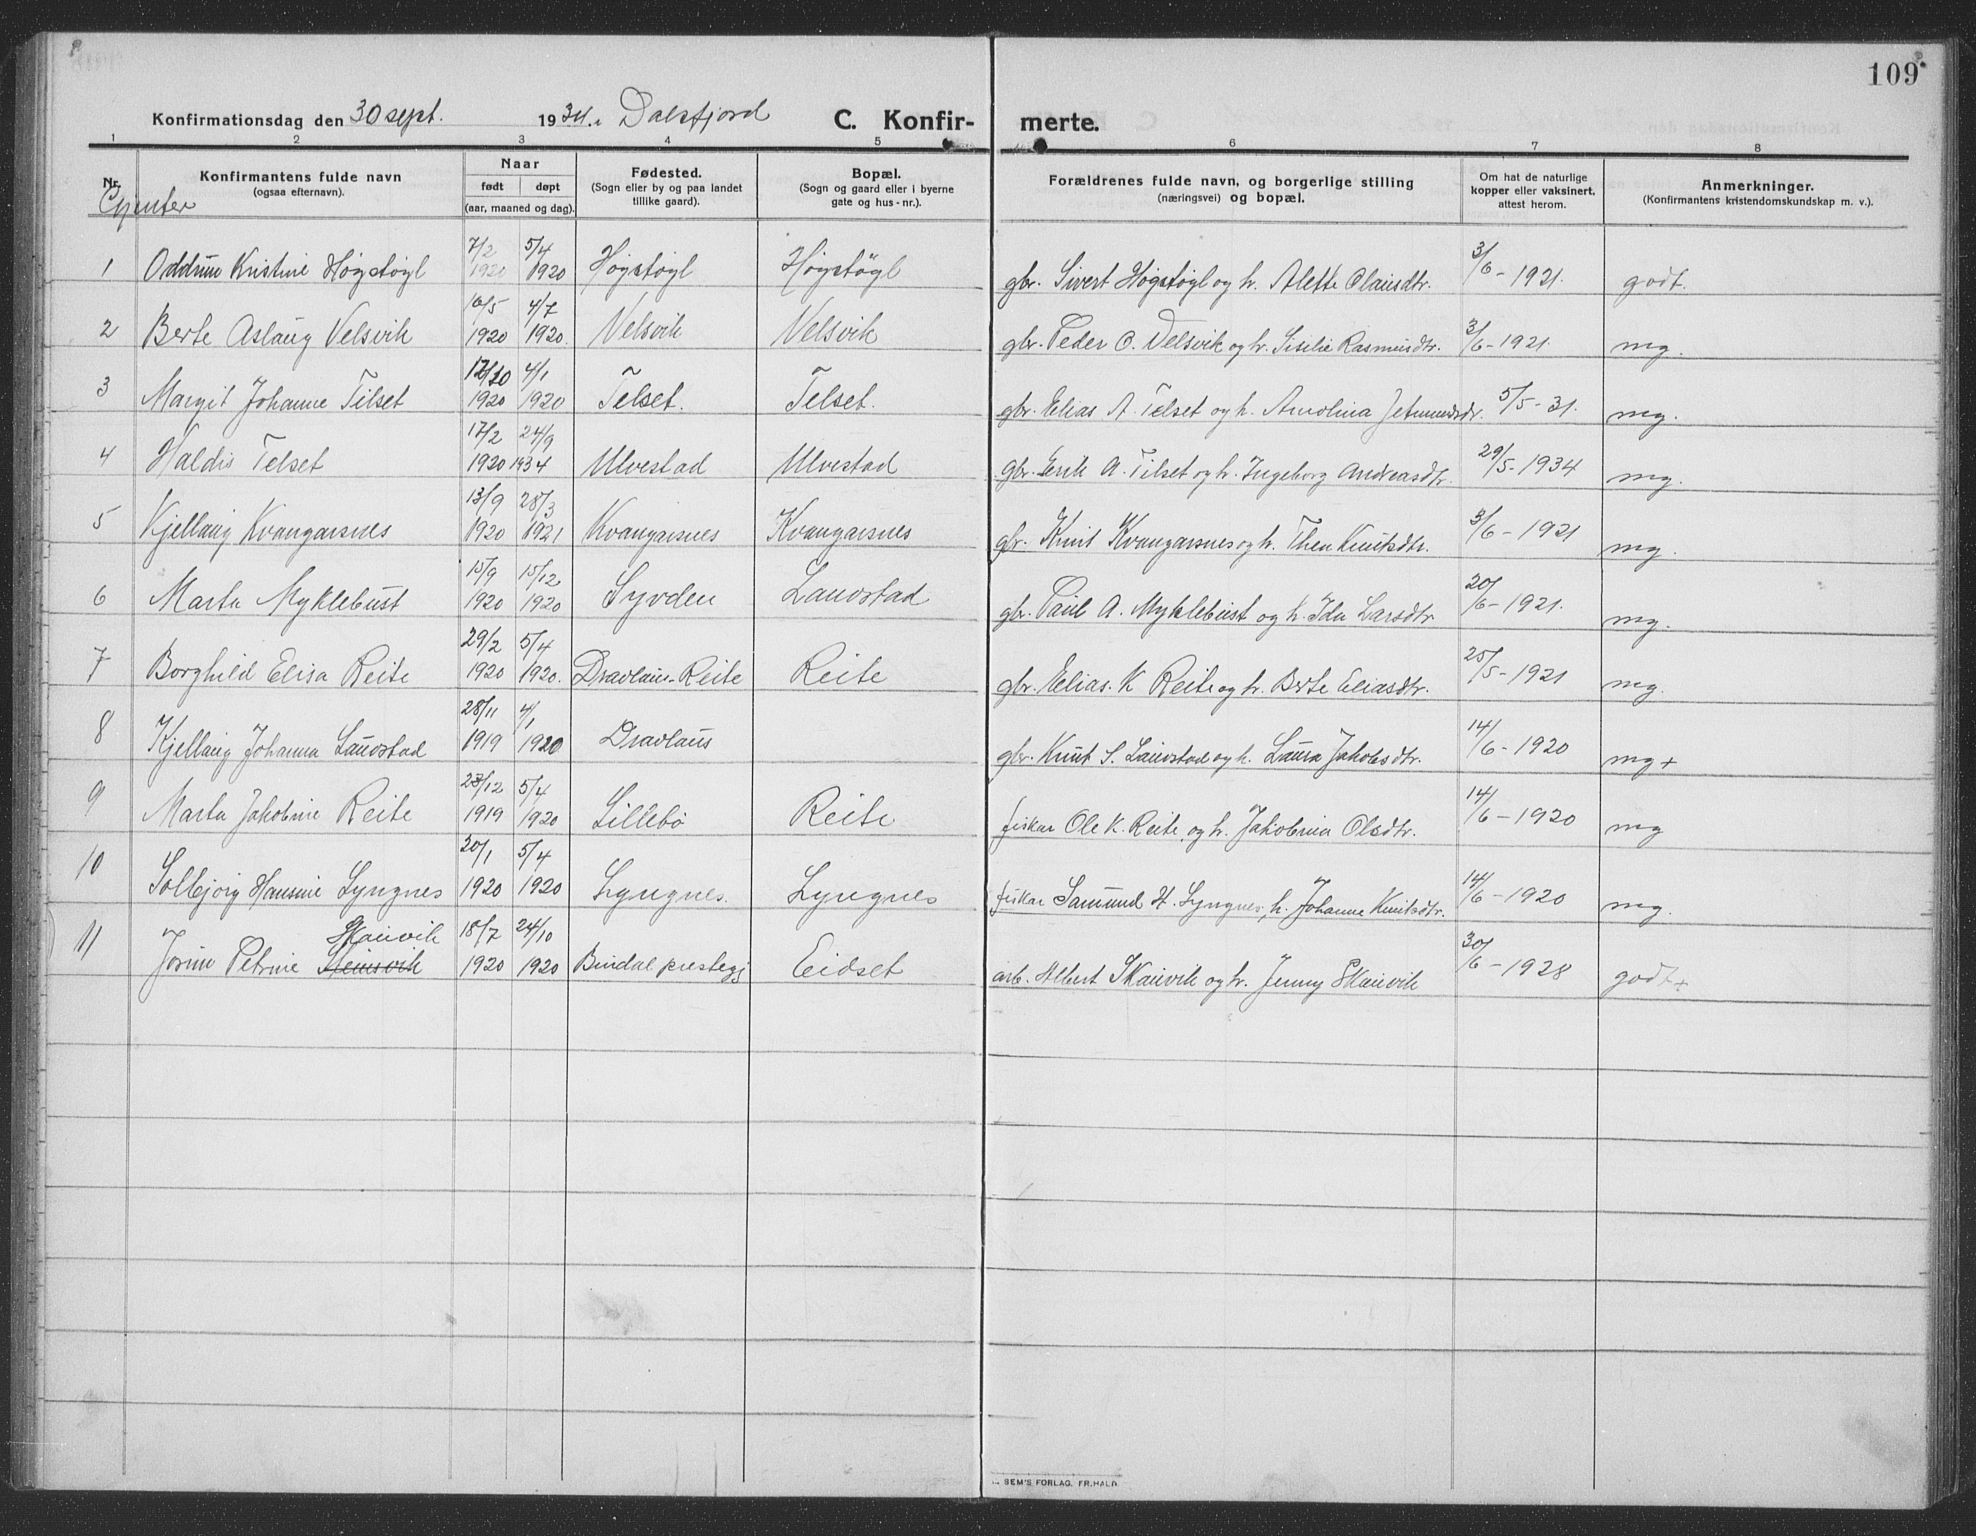 109
Konfirmationsdag den 30 sept. 1934. i Dalsfjord C. Konfir- merte.
1 2 3 4 5 6 7 8
Nr. Konfirmantens fulde navn (ogsaa efternavn). Naar født døpt (aar, maaned og dag). Fødested. (Sogn eller by og paa landet tillike gaard). Bopæl. (Sogn og gaard eller i byerne gate og hus-nr.). Forældrenes fulde navn, og borgerlige stilling (næringsvei) og bopæl. Om hat de naturlige kopper eller vaksinert, attest herom. Anmerkninger. (Konfirmantens kristendomskundskap m. v.).
Gjenter
1 Oddrun Kristine Høgstøyl 7/2 1920 5/4 1920 Høgstøyl Høgstøyl gbr. Sivert Høgstøyl og h. Alette Olausdtr. 3/6-1921. godt.
2 Berte Aslaug Velsvik 10/5 1920 4/7 1920. Velsvik Velsvik gbr. Peder O. Velsvik og h. Sisilie Rasmusdtr. 3/6-1921. mg.
3 Margit Johanne Telset 12/10 1920 4/1 1920 Telset. Telset. gbr. Elias A. Telset og h. Amolina Jetmundsdr. 5/5-31. mg.
4 Haldis Telset 17/2 1920 24/9 1934 Ulvestad Ulvestad gbr. Erik A. Telset og h. Ingeborg Andreasdtr. 29/5-1934 mg.
5 Kjellaug Kvangarsnes 13/9 1920 28/3 1921 Kvangarsnes Kvangarsnes gbr. Knut Kvangarsnes og h. Thea Knutsdtr. 3/6-1921 mg.
6 Marta Myklebust 15/9 1920 15/12 1920 Syvden Lauvstad gbr. Paul A. Myklebust og h. Ida Larsdtr 20/6-1921. mg.
7 Borghild Elisa Reite 29/2 1920 5/4 1920. Dravlaus-Reite Reite gbr. Elias. K Reite og h. Berte Eliasdtr. 25/5-1921 mg.
8 Kjellaug Johanna Lauvstad 28/11 1919 4/1 1920 Dravlaus gbr. Knut S. Lauvstad og h. Laura Jakobsdtr. 14/6-1920 mg+
9 Marta Jakobine Reite 23/12 1919 5/4 1920 Lillebø Reite fiskar Ole K. Reite og h. Jakobina Olsdtr. 14/6-1920 mg
10 Solbjørg Hansine Lyngnes 20/1 1920 5/4 1920 Lyngnes. Lyngnes fiskar Samund H. Lyngnes, h. Johanne Knutsdtr. 14/6-1920 mg.
Skauvik
11 Jorun Petrine 18/7 1920 24/10 1920 Bindal prestegj Eidset arb. Albert Skauvik og h. Jenny Skauvik 30/6-1928 godt+
SEM'S FORLAG, FR.HALD.